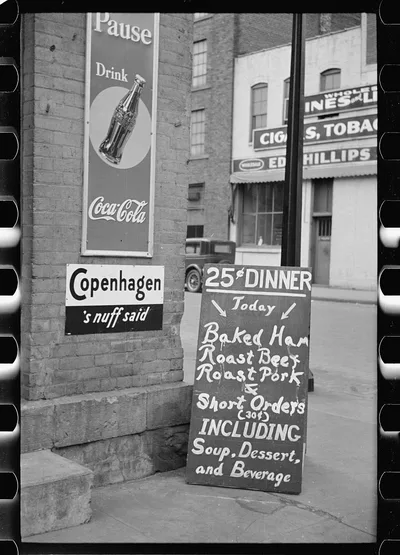 Pause
Drink
Coca-Cola
Copenhagen
's nuff said
WHOLES
INES - L
CIGARS, TOBAC
ED PHILLIPS
25¢ DINNER
Today
Baked Ham
Roast Beef
Roast Pork
&
Short Orders
(30¢)
INCLUDING
Soup, Dessert,
and Beverage